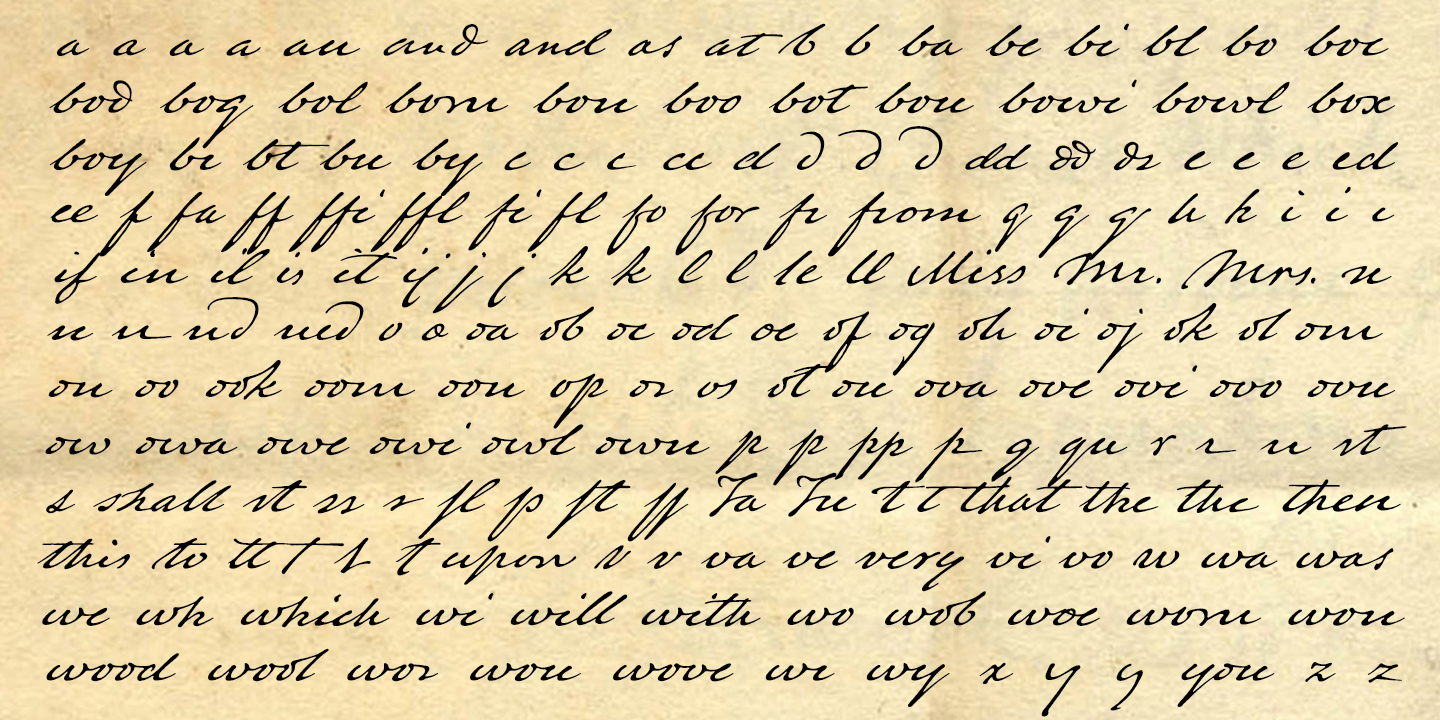 a a a a an and and as at b b ba be bi bl bo boe
bod bog bol bom bon boo bot bou bowi bowl box
boy br bt bu by c c c cc d d d d dd dd dr e e e ed
ee f fa ff ffi ffl fi fl fo for fr from g g g h h i i i
if in il is it ij j j k k l l le ll Miss Mr. Mrs. n
n n nd ned o o oa ob oc od oe of og oh oi oj ok ol om
on oo ook oom oon op or os ot ou ova ove ovi ovo ovu
ow owa owe owi owl own p p pp p q qu r r rr rt
s shall st ss s fl p ft ff Ta Tu t t that the the then
this to tt t t t upon v v va ve very vi vo w wa was
we wh which wi will with wo wob woe wom won
wood wool wor wou wove wr wy x y y you z z